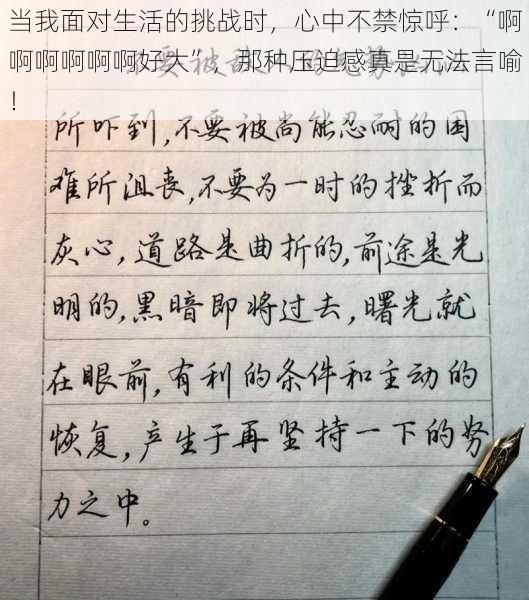 当我面对生活的挑战时，心中不禁惊呼：“啊
啊啊啊啊啊好大”，那种压迫感真是无法言喻
！
要被
所吓到,不要被尚能忍耐的困
难所沮丧,不要为一时的挫折而
灰心,道路是曲折的,前途是光
明的,黑暗即将过去,曙光就
在眼前,有利的条件和主动的
恢复,产生于再坚持一下的努
力之中。